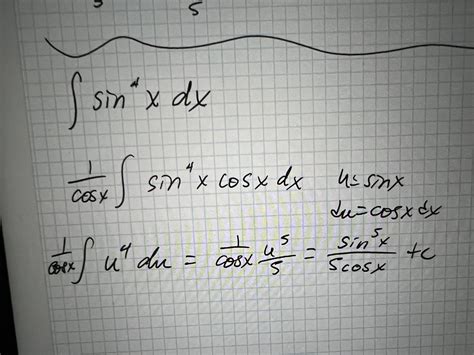 5
∫ sin⁴ x dx
1/cosx ∫ sin⁴ x cosx dx u=sinx
du=cosx dx
1/cosx ∫ u⁴ du = 1/cosx u⁵/5 = sin⁵x/5cosx +c